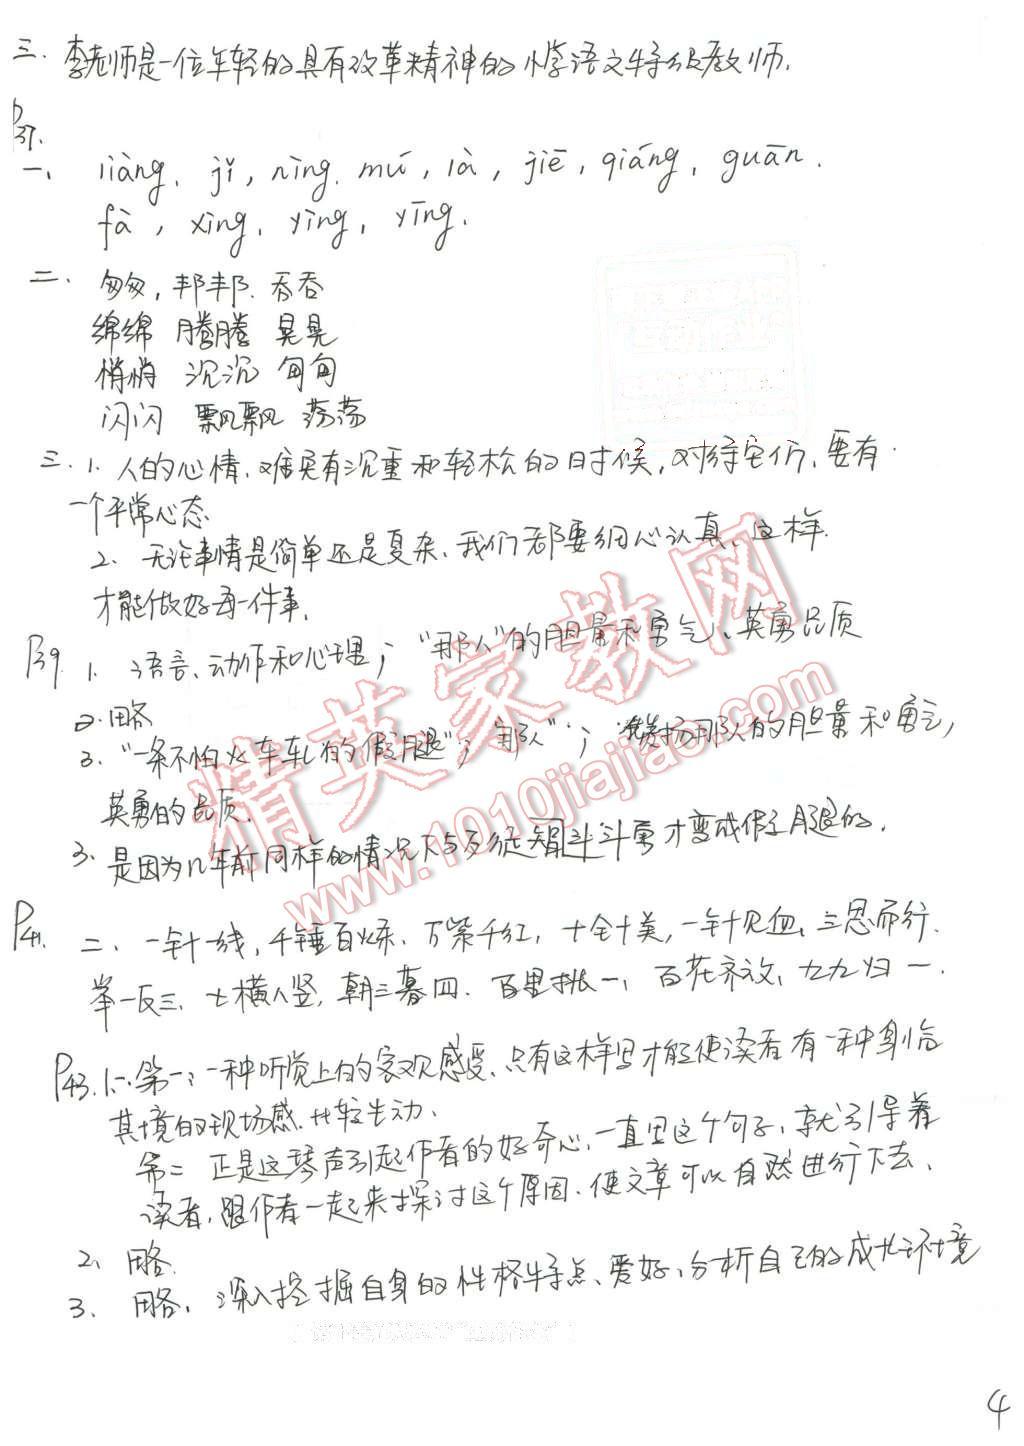 三. 李老师是一位年轻的具有改革精神的小学语文特级教师.
P37.
一、 liàng, jǐ, nīng, mú, là, jiē, qiáng, guān.
fà, xìng, yìng, yīng.
二. 匆匆, 邦邦. 吞吞
绵绵 腾腾 晃晃
悄悄 沉沉 甸甸
闪闪 飘飘 荡荡
三. 1. 人的心情, 难免有沉重和轻松的时候, 对待它们, 要有
一个平常心态
2. 无论事情是简单还是复杂、我们都要细心认真、这样
才能做好每一件事.
P39. 1. 语言、动作和心理; "那人"的胆量和勇气、英勇品质
2. 略
3. "一条不怕火车轧的假腿"; "那人"; 赞扬那人的胆量和勇气,
英勇的品质.
3. 是因为几年前同样的情况下与歹徒智斗斗勇才变成假腿的.
P41. 二、一针一线, 千锤百炼. 万紫千红, 十全十美, 一针见血, 三思而行.
举一反三, 七横八竖, 朝三暮四. 百里挑一, 百花齐放, 九九归一.
P43. 1. 第一: 一种听觉上的客观感受, 只有这样写才能使读者有一种身临
其境的现场感. 比较生动、
第二 正是这琴声引起作者的好奇心, 一直因这个句子, 就引导着
读者, 跟作者一起来探讨这个原因. 使文章可以自然进行下去.
2、 略.
3. 略, 深入挖掘自身的性格特点、爱好, 分析自己的成长环境
精英家教网
www.1010jiajiao.com
4